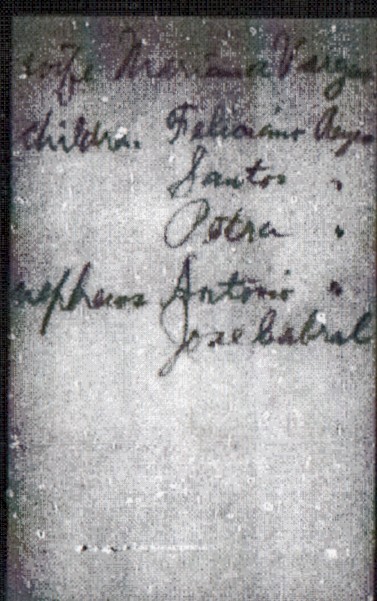 wife Mariana Vargas
children Feliciano Reyes
Santos "
Petra "
nephews Antonio "
Jose Cabral